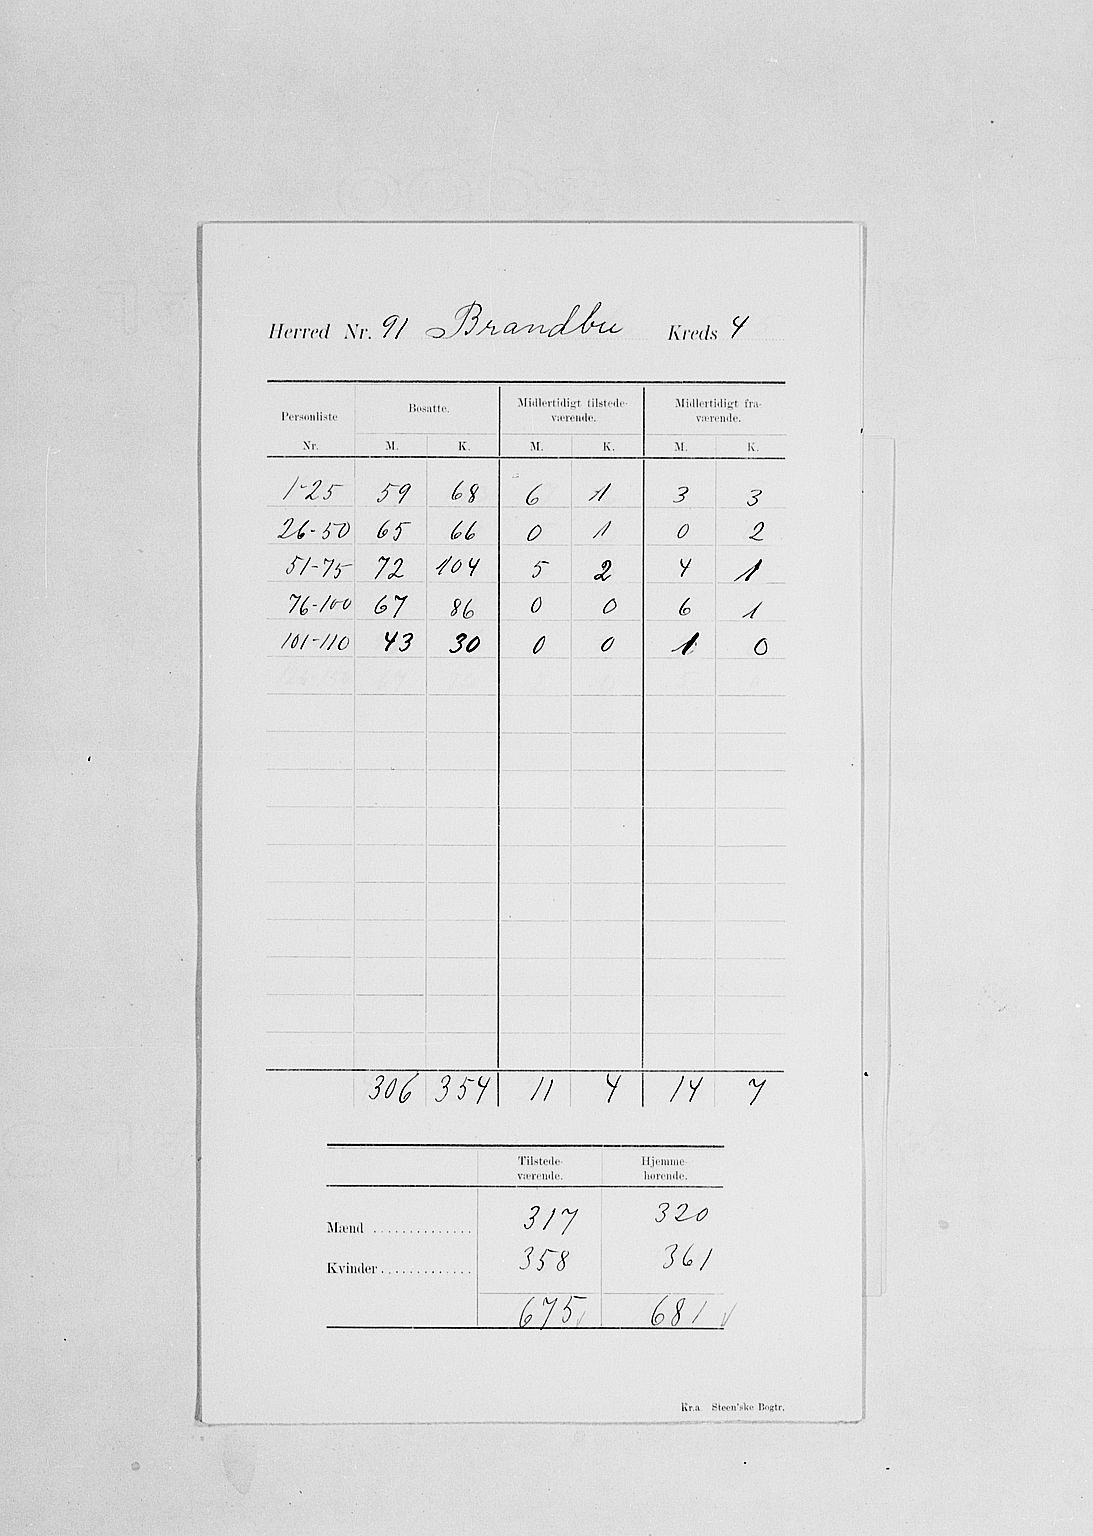 Herred Nr. 91 Brandbu Kreds 4
Personliste Nr. Bosatte. Midlertidigt tilstede-værende. Midlertidigt fra-værende.
M. K. M. K. M. K.
1-25 59 68 6 1 3 3
26-50 65 66 0 1 0 2
51-75 72 104 5 2 4 1
76-100 67 86 0 0 6 1
101-110 43 30 0 0 1 0
306 354 11 4 14 7
Tilstede-værende. Hjemme-hørende.
Mænd .............. 317 320
Kvinder............. 358 361
675 681
Kr.a. Steen'ske Bogtr.